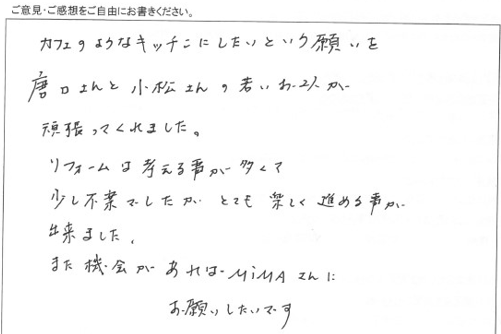 ご意見・ご感想をご自由にお書きください。
カフェのようなキッチンにしたいという願いを
唐口さんと小松さんの若いお2人が
頑張ってくれました。
リフォームは考える事が多くて
少し不業でしたが とても楽しく進める事が
出来ました。
また機会があればMIMAさんに
お願いしたいです